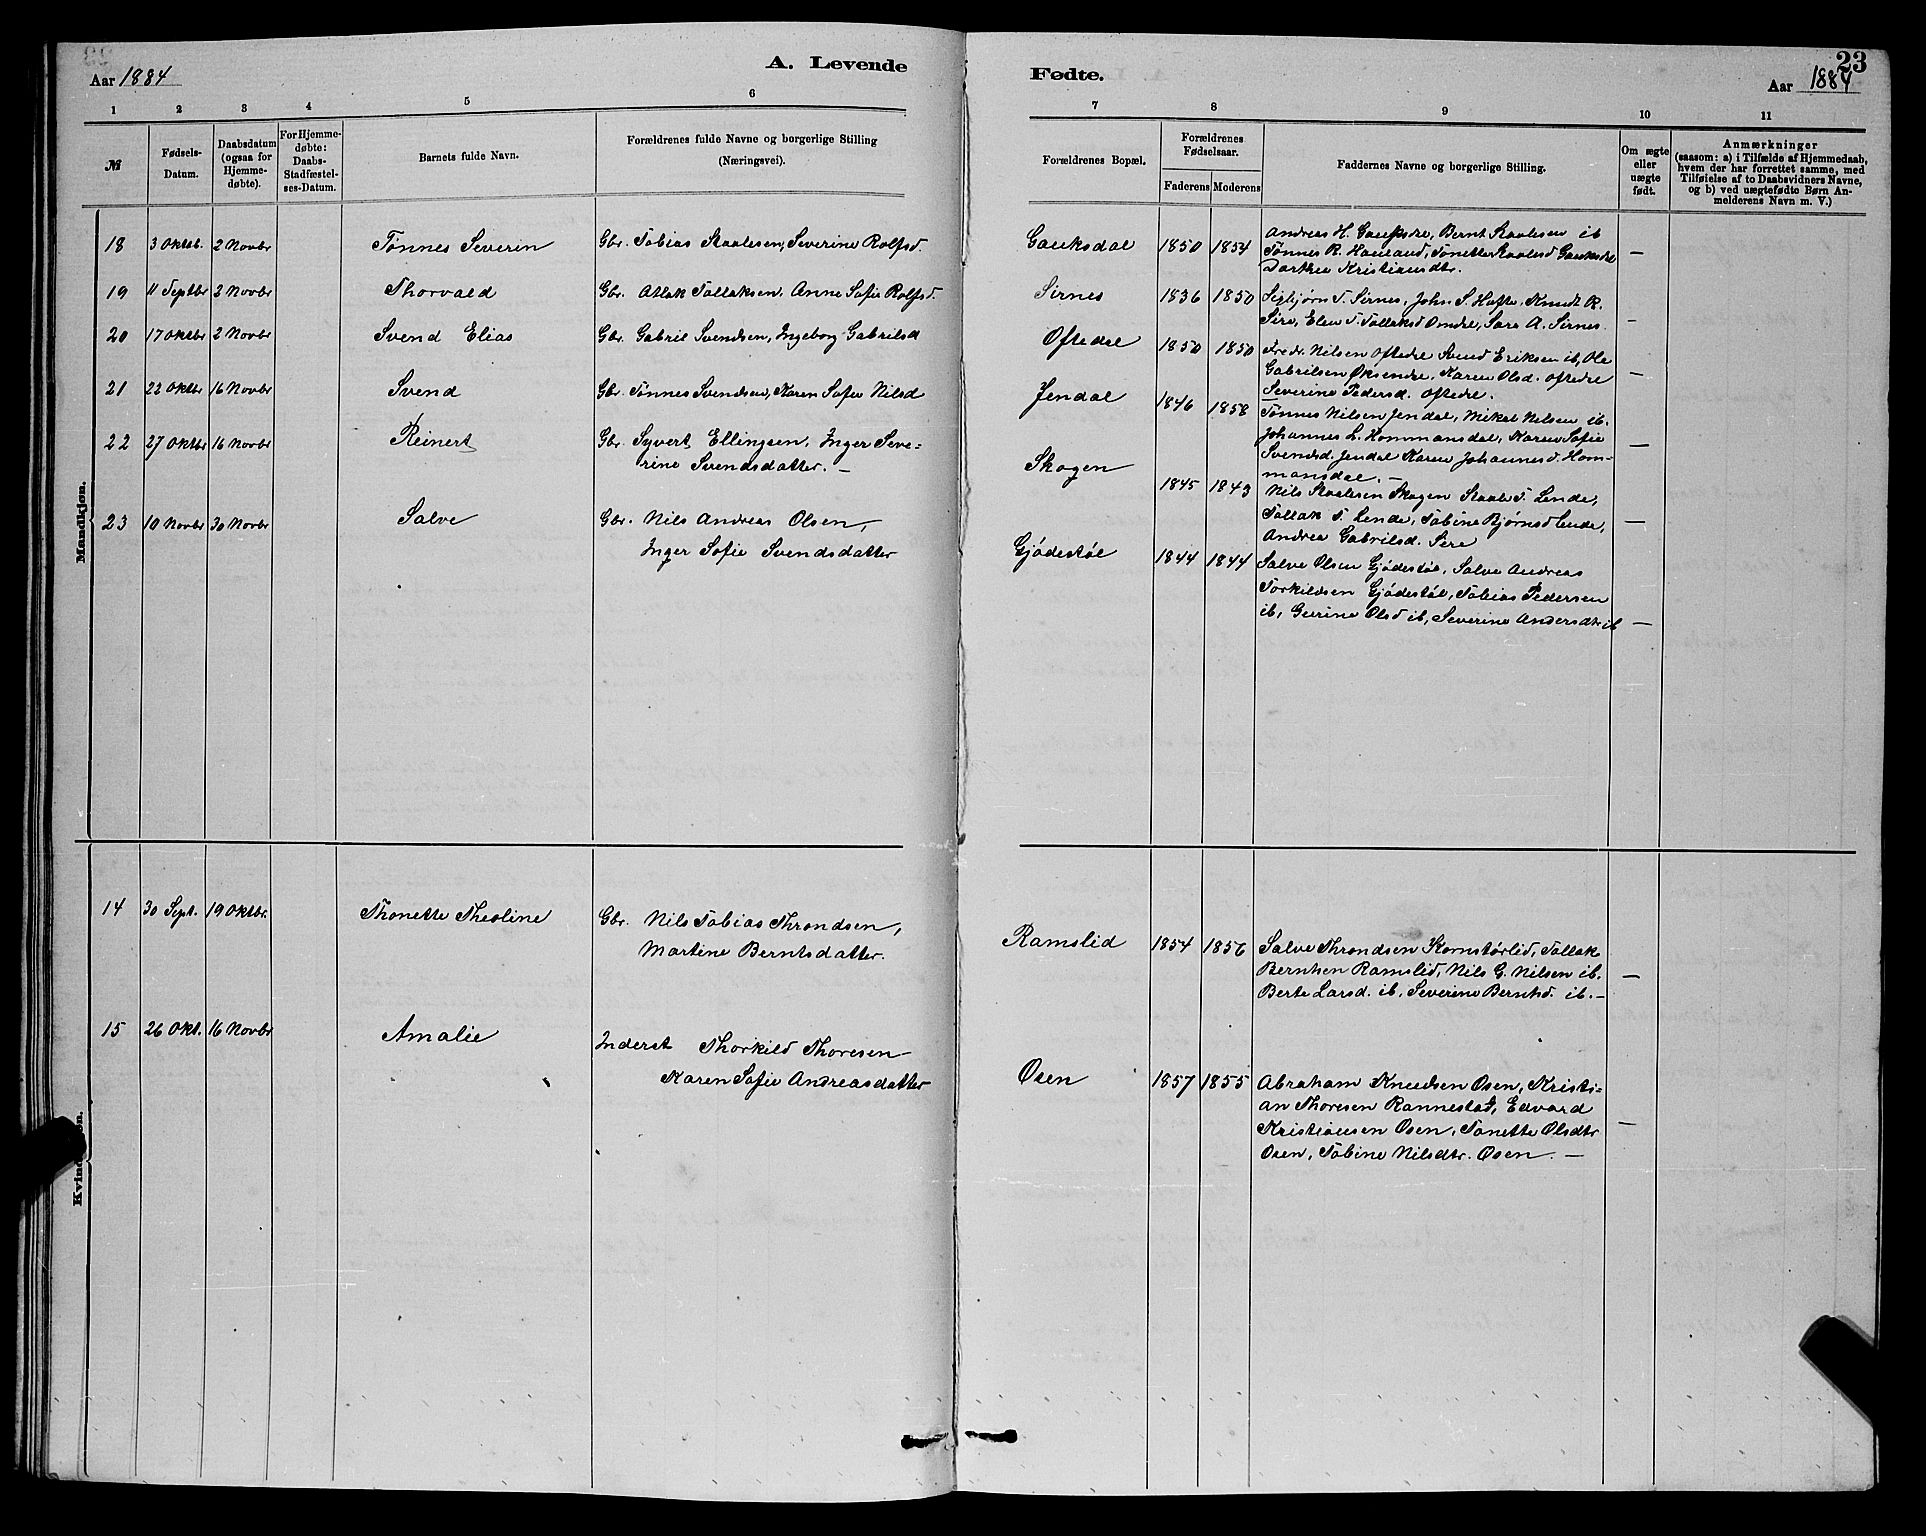 Aar 1884
A. Levende
1
2
3
4
5
6
№
Fødsels-
Datum.
Daabsdatum
(ogsaa for
Hjemme-
døbte).
For Hjemme-
døbte:
Daabs-
Stadfæstel-
ses-Datum.
Barnets fulde Navn.
Forældrenes fulde Navne og borgerlige Stilling
(Næringsvei).
Mandkjøn.
18 3 Oktbr. 2 Novbr Tønnes Severin Gbr. Tobias Staalesen, Severine Rolfsd.
19 11 Septbr 2 Novbr Thorvald Gbr. Atlak Tollaksen. Anne Sofie Rolfsd.
20 17 Oktbr 2 Novbr Svend Elias Gbr. Gabriel Svendsen, Ingeborg Gabrilsd
21 22 Oktbr 16 Novbr Svend Gbr. Tønnes Svendsen, Karen Sofie Nilsd
22 27 Oktbr 16 Novbr Reinert Gbr. Syvert Ellingsen, Inger Seve=
rine Svendsdatter. —
23 10 Novbr 30 Novbr Salve Gbr. Nils Andreas Olsen,
Inger Sofie Svendsdatter
14 30 Sept. 19 Oktbr. Thonette Theoline Gbr. Nils Tobias Throndsen,
Martine Berntsdatter.
15 26 Okt. 16 Novbr Amalie Inderst Thorkild Thoresen
Karen Sofie Andreasdatter
Fødte.
23
Aar 1884
7
8
9
10
11
Forældrenes Bopæl.
Forældrenes
Fødselsaar.
Faderens Moderens
Faddernes Navne og borgerlige Stilling.
Om ægte
eller
uægte
født.
Anmærkninger
(saasom: a) i Tilfælde af Hjemmedaab,
hvem der har forrettet samme, med
Tilføielse af to Daabsvidners Navne,
og b) ved uægtefødte Børn An-
melderens Navn m. V.)
Gauksdal 1850 1854 Andreas H. Gauksdre, Bernt Staalesen ib
Tønnes R. Haueland, Tonette Staalesd Gauksdre —
Dorthea Kristiansdtr.
Sirnes 1836 1850 Sigbjørn T. Sirnes, John S. Hafte, Knudt R.
Sire, Elen T. Tollaksd Omdre, Sara A. Sirnes. —
Oftedal 1850 1850 Fredr. Nilsen Oftedre Svend Eriksen ib, Ole
Gabrilsen Øksendre, Karen Olsd. Oftedre —
Severine Pedersd. Oftedre.
Jendal 1846 1858 Tønnes Nilsen Jendal, Mikal Nilsen ib.
Johannes L. Hommansdal, Karen Sofie —
Svendsd. Jendal Karen Johannesd. Hom=
mansdal. —
Skogen 1845 1843 Nils Staalesen Skogen Staale T. Lende,
Tollak T. Lende, Tobine Bjørnsd Lende, —
Andrea Gabrilsd. Sire
Gjødestøl 1844 1844 Salve Olsen Gjødestøl, Salve Andreas
Torkildsen Gjødestøl, Tobias Pedersen
ib, Geerine Olsd ib, Severine Andersdtr ib —
Ramslid 1854 1856 Salve Throndsen Kornstørlid, Tollak
Berntsen Ramslid, Nils G. Nilsen ib. —
Berte Larsd. ib, Severine Berntsd. ib. —
Osen 1857 1855 Abraham Knudsen Osen, Kristi=
an Thoresen Rannestad, Edvard
Kristiansen Osen, Tonette Olsdtr —
Osen, Tobine Nilsdtr. Osen. —